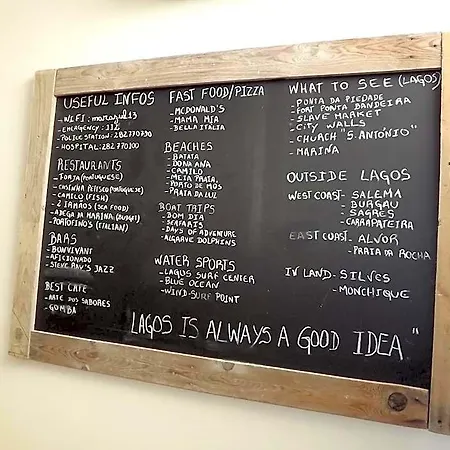 USEFUL INFOS
- WIFI: marazul13
- EMERGENCY: 112
- POLICE STATION: 282.770930
- HOSPITAL: 282.770100
RESTAURANTS
- (PORTUGUESE)
- CASINHA PETISCO (PORTUGUESE)
- CAMILO (FISH)
- 2 IRMÃOS (SEA FOOD)
- ADEGA DA MARINA (BUDGET)
- PORTOFINO'S (ITALIAN)
BARS
- BONVIVANT
- AFICIONADO
- STEVIE RAY'S JAZZ
BEST CAFE
- ARTE DOS SABORES
- GOMBA
FAST FOOD/PIZZA
- McDONALD'S
- MAMA MIA
- BELLA ITÁLIA
BEACHES
- BATATA
- DONA ANA
- CAMILO
- MEIA PRAIA
- PORTO DE MÓS
- PRAIA DA LUZ
BOAT TRIPS
- BOM DIA
- SEAFARIS
- DAYS OF ADVENTURE
- ALGARVE DOLPHINS
WATER SPORTS
- LAGOS SURF CENTER
- BLUE OCEAN
- WIND-SURF POINT
WHAT TO SEE (LAGOS)
- PONTA DA PIEDADE
- FORT PONTA BANDEIRA
- SLAVE MARKET
- CITY WALLS
- CHURCH "S. ANTÓNIO"
- MARINA
OUTSIDE LAGOS
WEST COAST - SALEMA
- BURGAU
- SAGRES
- CARRAPATEIRA
EAST COAST - ALVOR
- PRAIA DA ROCHA
INLAND - SILVES
- MONCHIQUE
"LAGOS IS ALWAYS A GOOD IDEA"